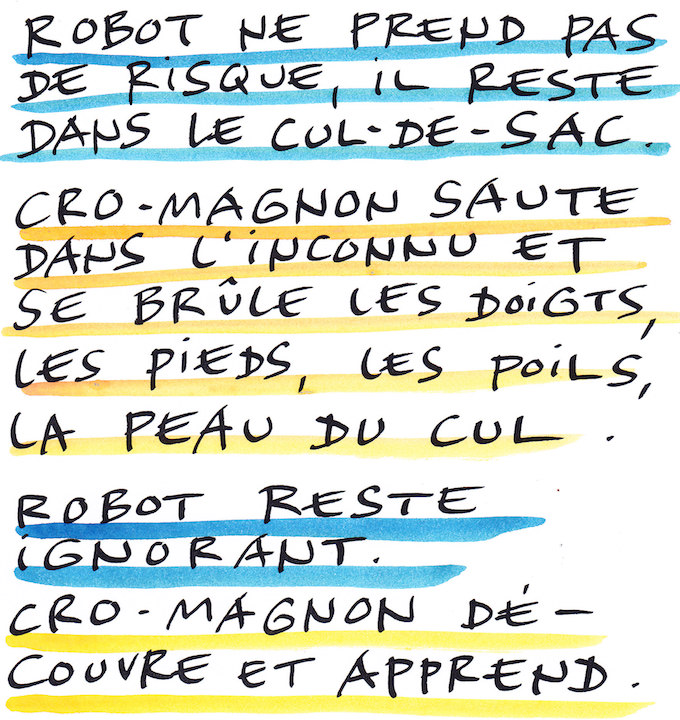 ROBOT NE PREND PAS
DE RISQUE, IL RESTE
DANS LE CUL-DE-SAC.
CRO-MAGNON SAUTE
DANS L'INCONNU ET
SE BRÛLE LES DOIGTS,
LES PIEDS, LES POILS,
LA PEAU DU CUL.
ROBOT RESTE
IGNORANT.
CRO-MAGNON DÉ-
COUVRE ET APPREND.